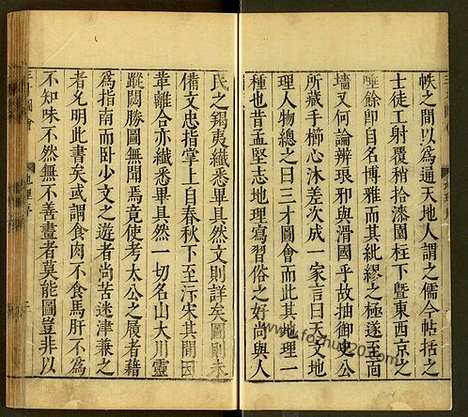 帙之間以爲通天地人謂之儒今帖括之
士徒工射覆稍拾漆園柱下暨東西京之
唾餘卽自名博雅而其紕繆之極遂至面
墻又何論辨琅邪與滑國乎故抽御史公
所藏手櫛心沐差次成一家言曰天曰
理人物總之曰三才圖會而其地理一
種也昔孟堅志地理寫習俗之好尚與人
民之錫夷纎悉畢具然文則詳矣圖則未
備文忠指掌上自春秋下至汴宋其間
韋離合亦纎悉畢具然一切名山大川靈
蹤閟勝圖無聞焉竟使考太公之履者藉
爲指南而臥少文之遊者尚苦迷津兼之
者允明此書矣武謂食肉不食馬肝不爲
不知味不然無不善畫者莫能圖豈非以
三才圖會
地理序
www.fozhu920.com